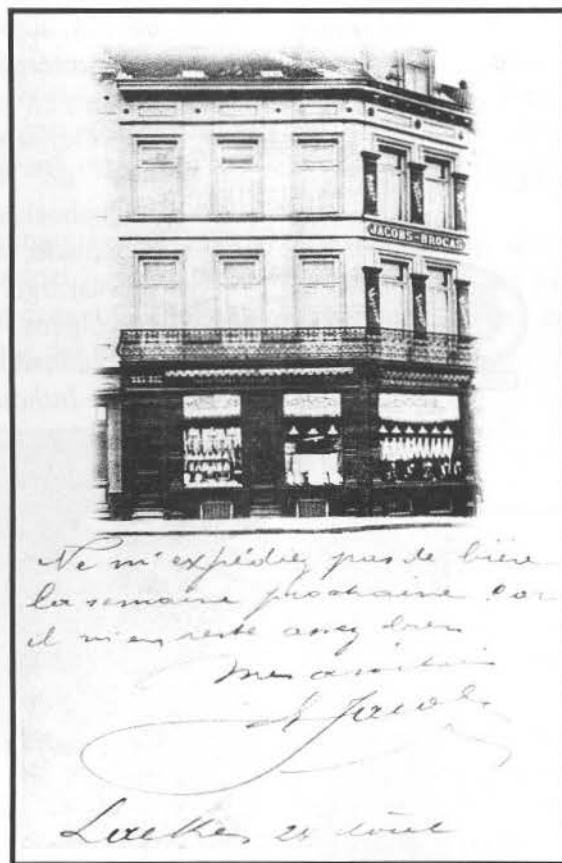 JACOBS-BROCAS
Ne m'expédiez pas de bière
la semaine prochaine car
il m'en reste assez bien
Mes amitiés
Jacobs
Laeken 24 août